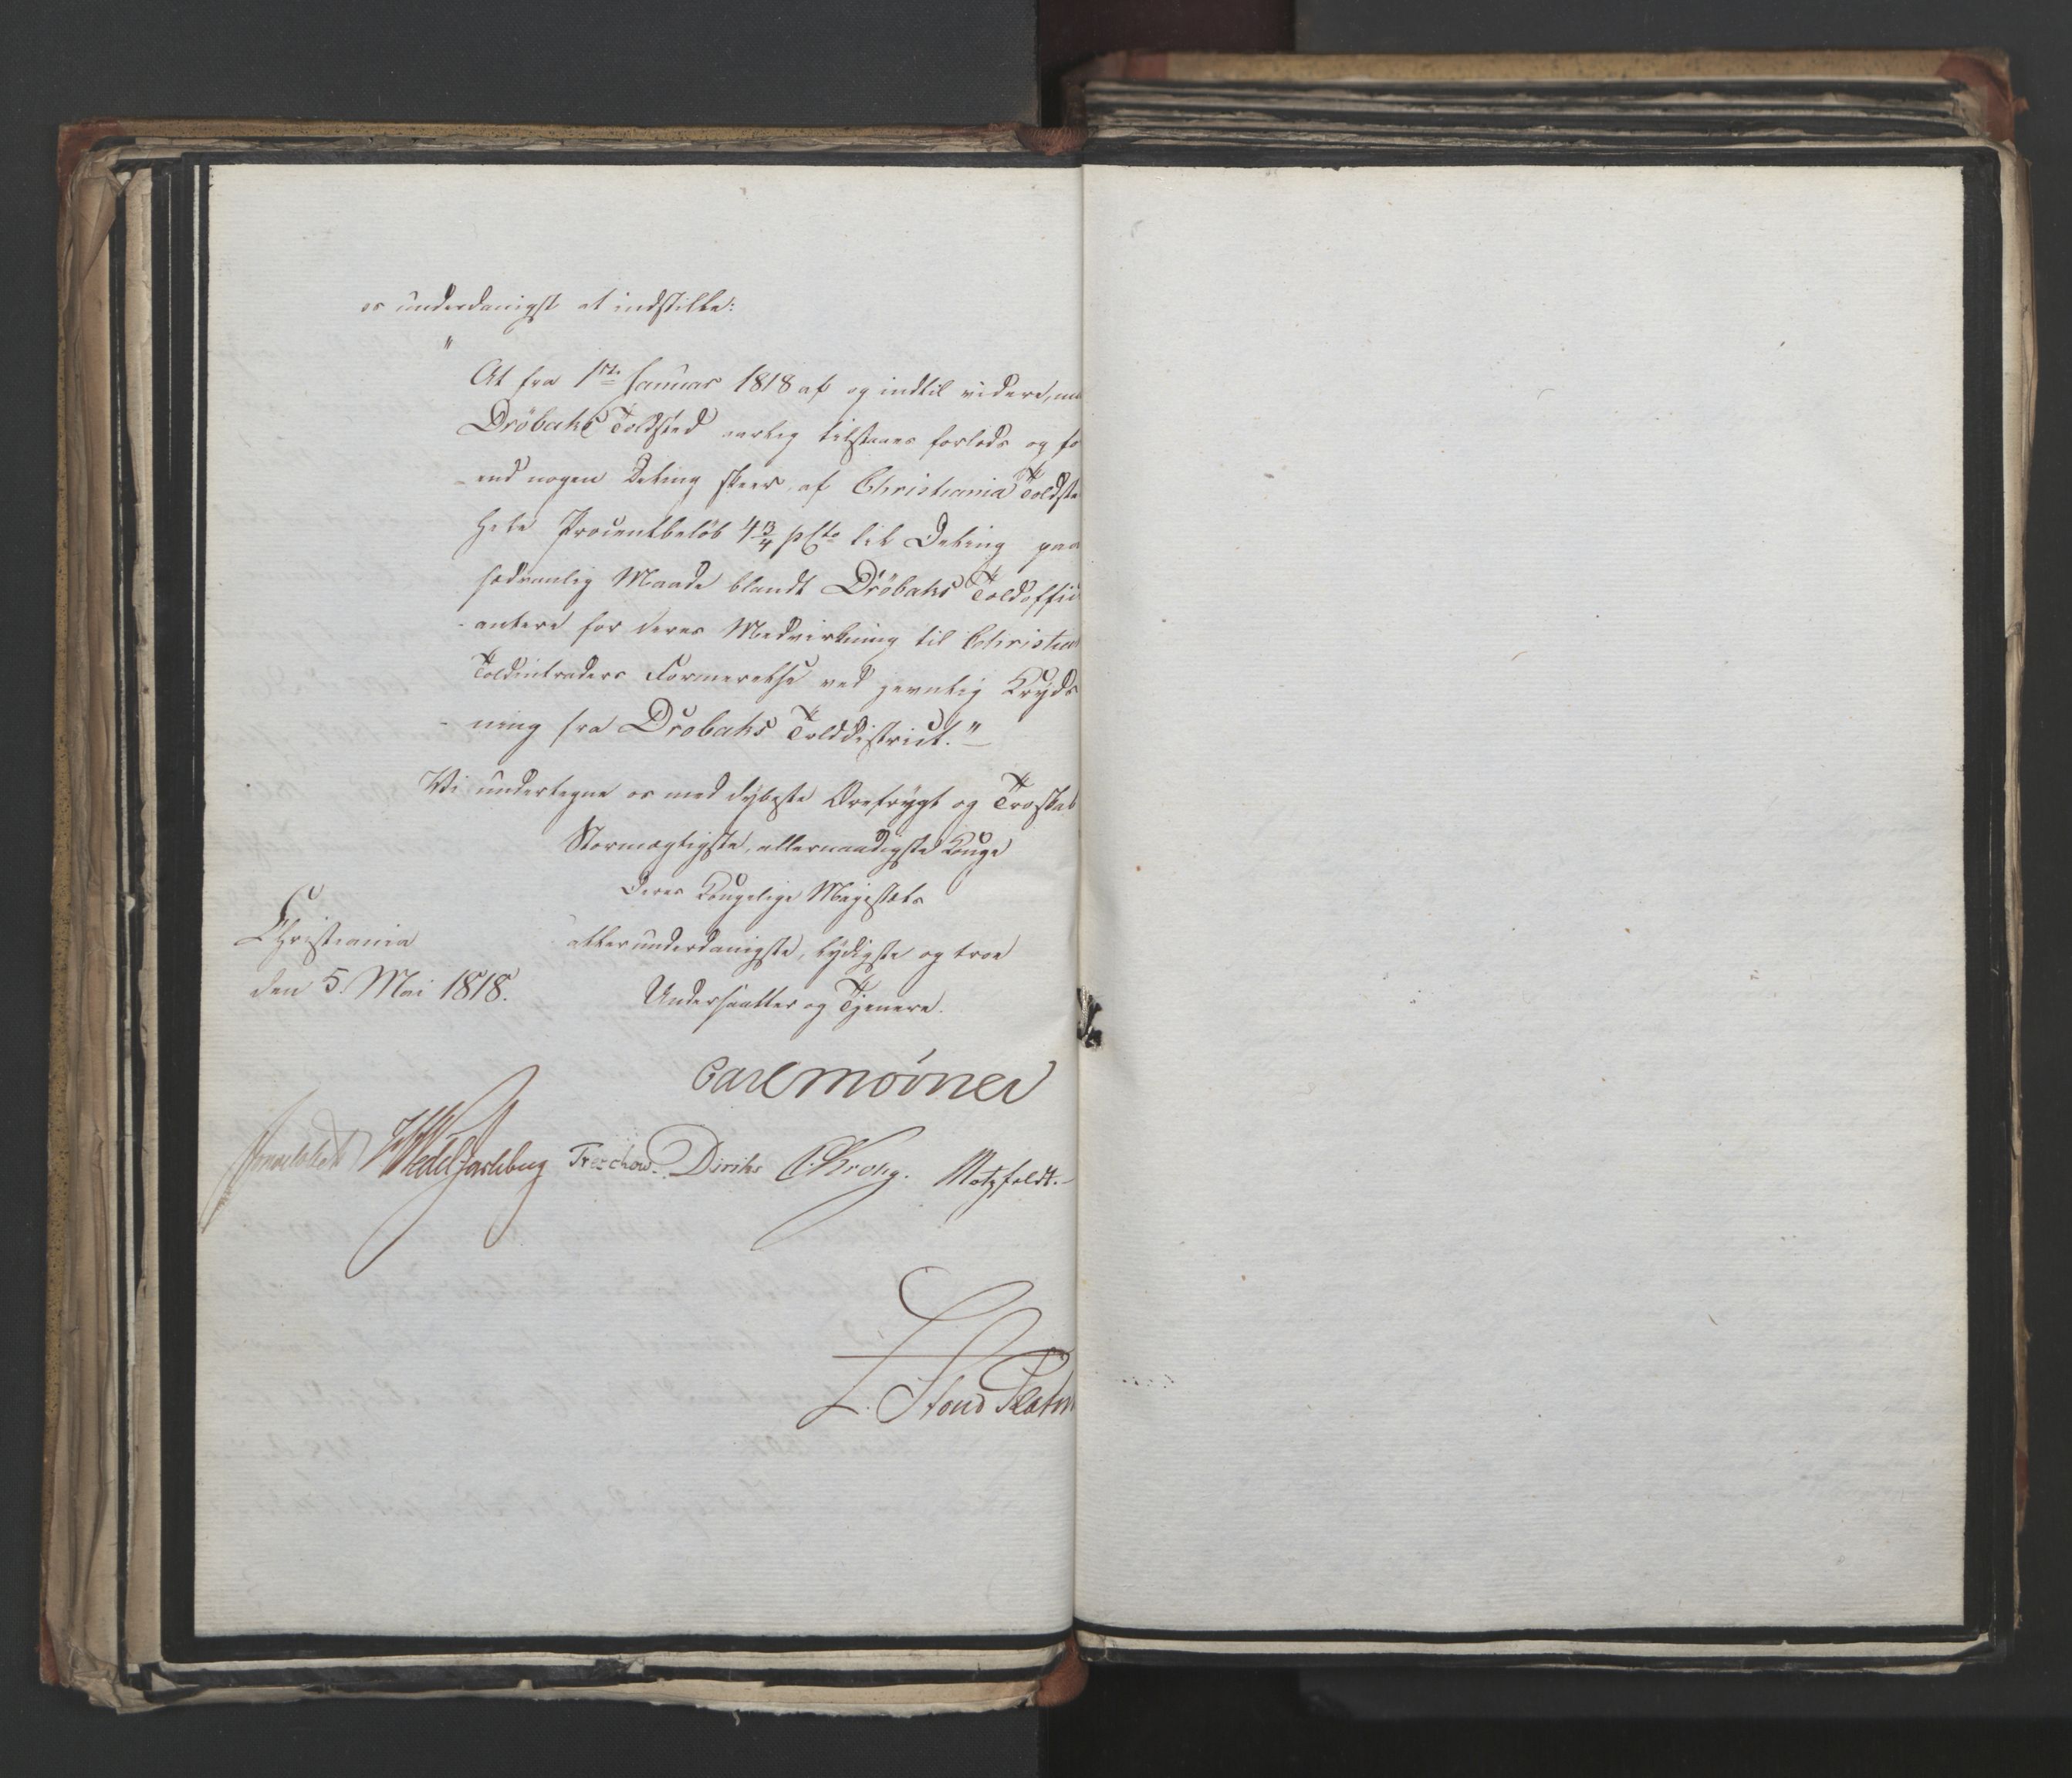 os underdanigst at indstille:
"
At fra 1ste Januar 1818 af og indtil videre, maa
Dröbaks Toldsted aarlig tilstaaes forlods og fo
end nogen Deling skeer, af Christiania Toldste
hele Procentbelöb 4 3/4 pCto til Deling paa
sædvanlig Maade blandt Dröbaks Toldoffici
-antere for deres Medvirkning til Christia
Toldintraders Formerelse ved jevnlig Kryds
-ning fra Dröbaks Tolddistrict."
Vi undertegne os med dybeste Ærefrygt og Troskab
Stormægtigste, allernaadigste Konge
Deres Kongelige Majestæts
allerunderdanigste, lydigste og troe
Undersaatter og Tjenere.
Christiania
den 5. Mai 1818.
Carl Mörner
Sommerhielm HWedel Jarlsberg Treschow. Diriks C. Krohg. Motzfeldt.
L. Stoud Platou